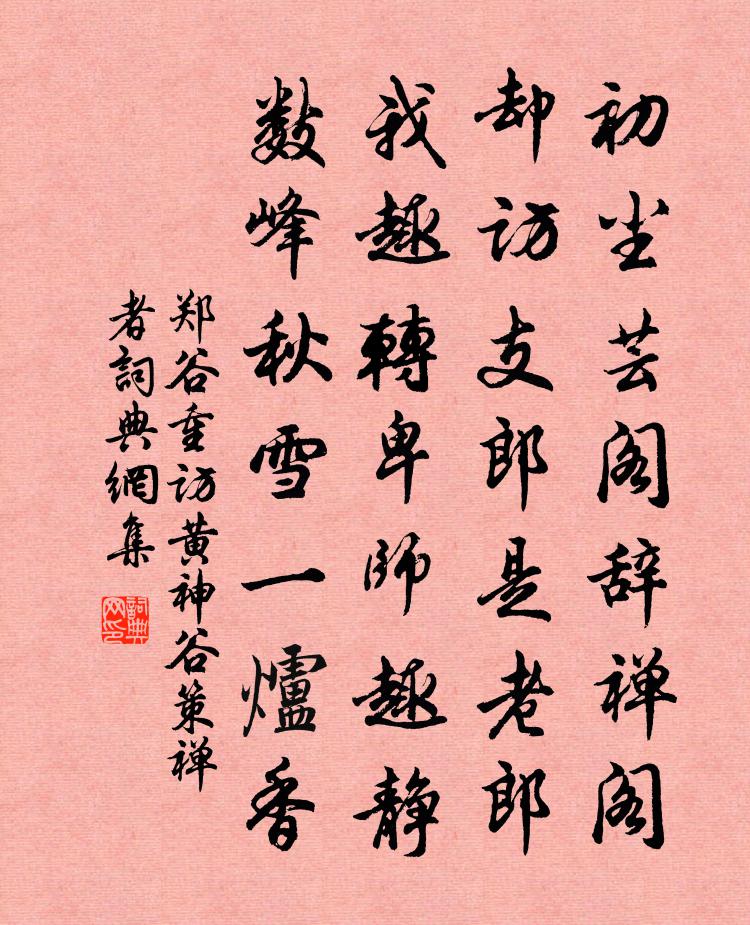 初尘芸阁辞禅阁
却访支郎是老郎
我趣轉卑师趣静
数峰秋雪一爐香
郑谷重访黄神谷策禅
者詞典網集
詞典
网印